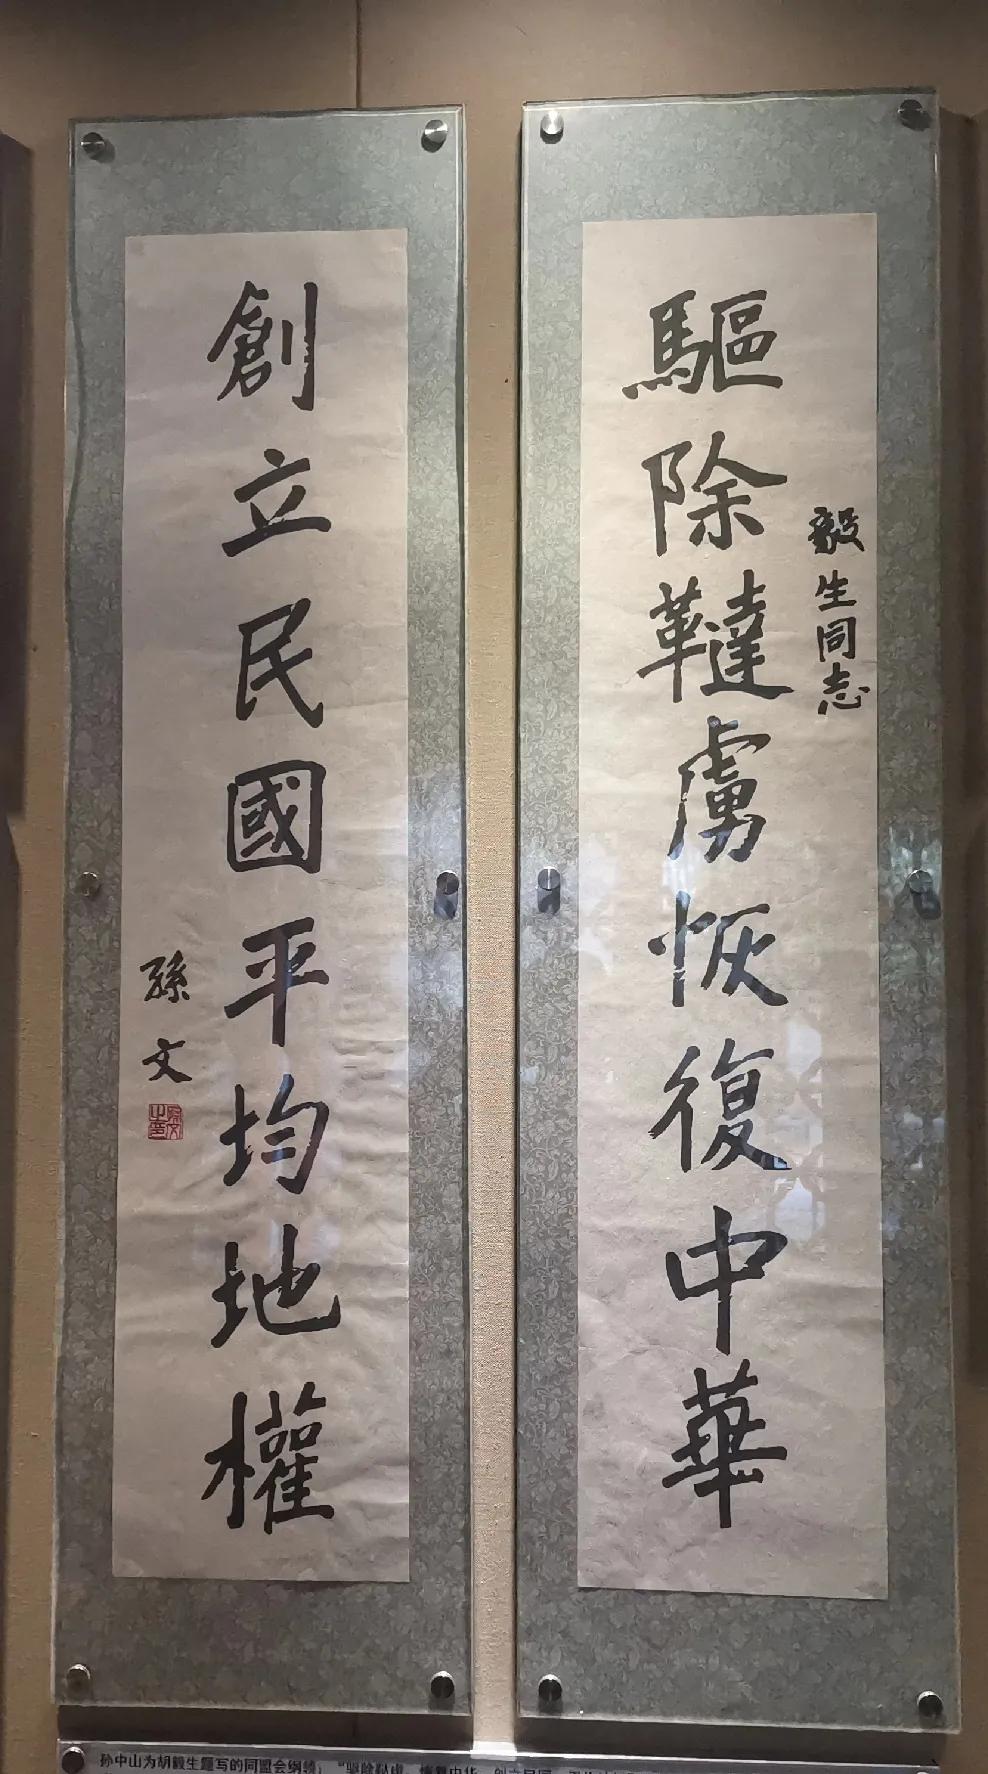 毅生同志
驅除韃虜恢復中華
創立民國平均地權
孫文
孫文之印
孙中山为胡毅生题写的同盟会纲领："驱除鞑虏，恢复中华，创立民国，